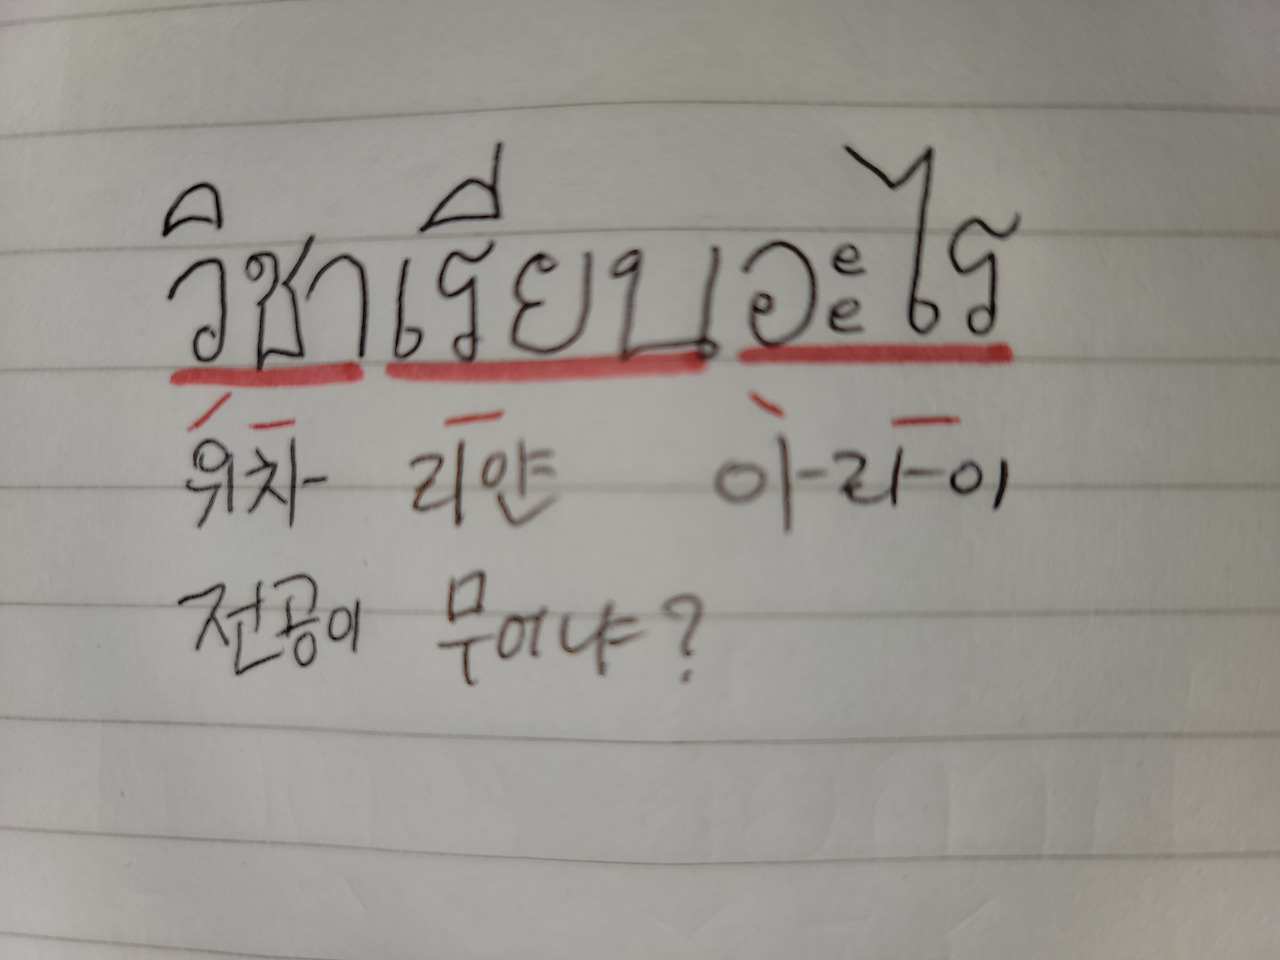 วิชาเรียนอะไร
위차- 리얀 아-라-이
전공이 무어냐?